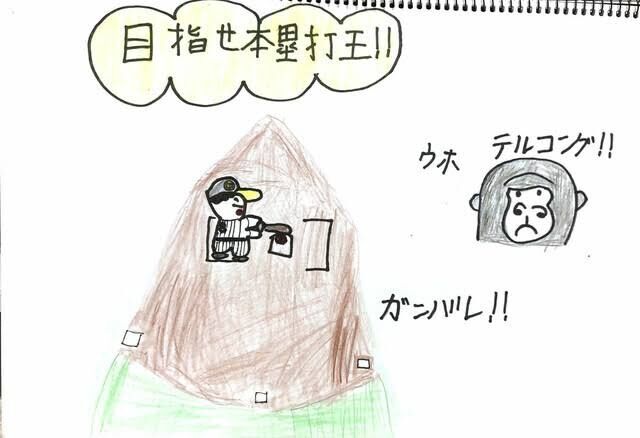 目指せ本塁打王!!
ウホ テルコング!!
ガンバレ!!